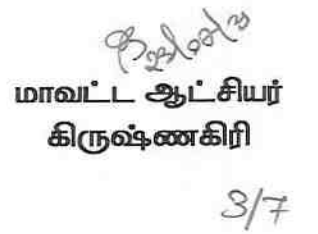 மாவட்ட ஆட்சியர்
கிருஷ்ணகிரி
3/7